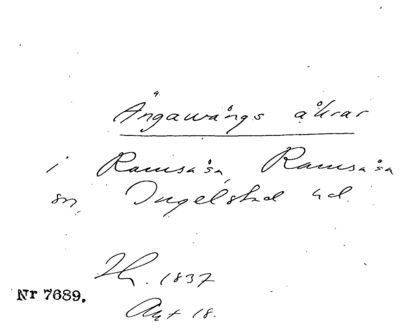 Ängawångs åkrar
i Ramsåsa, Ramsåsa
sn, Ingelstad hd.
1837
Akt 18.
Nr 7689.